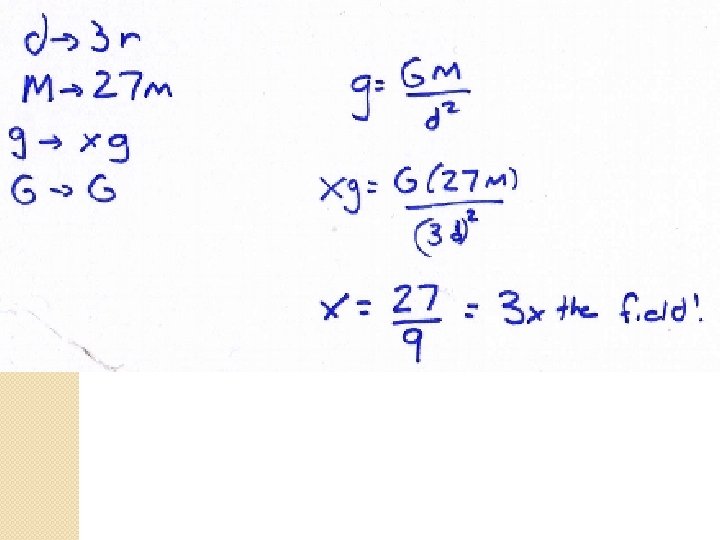 d→3r
M→27m
g→xg
G→G
g = GM/d²
xg = G(27M)/(3d)²
x = 27/9 = 3x the field!